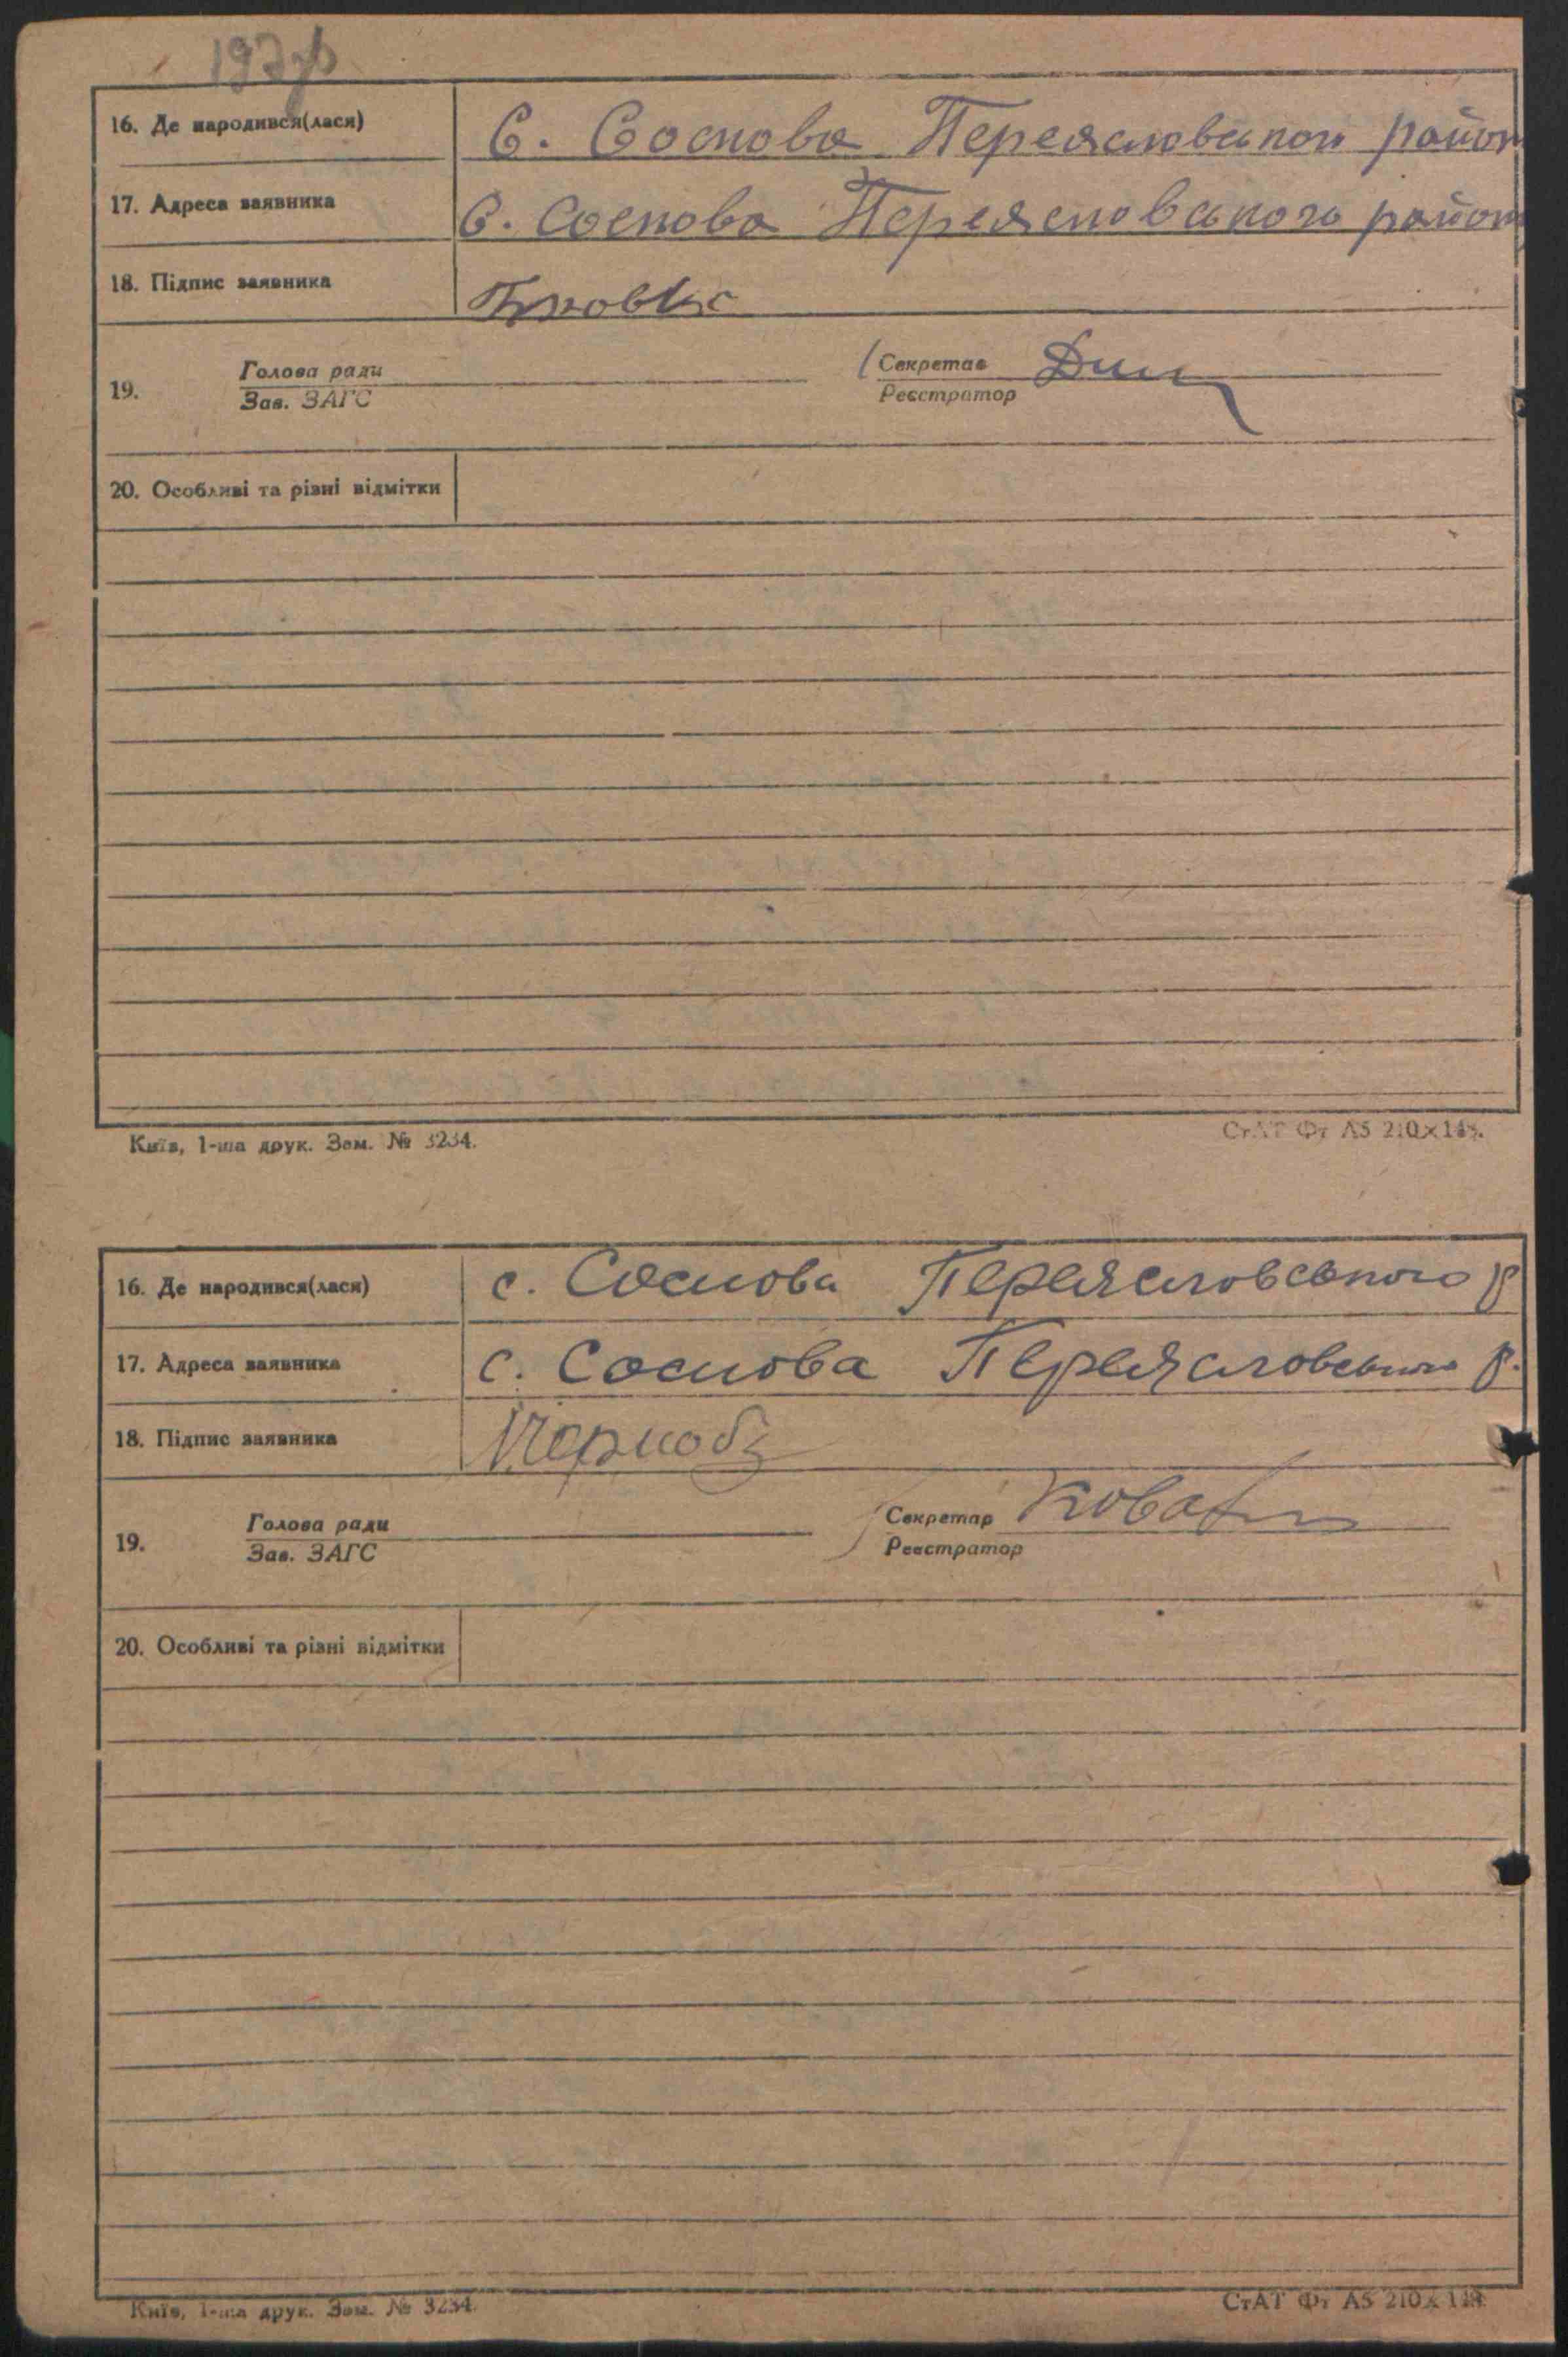 16. Де народився(лася) С. Соснова Переяславського район
17. Адреса заявника С. Соснова Переясловського район
18. Підпис заявника
19. Голова ради Секретар
Зав. ЗАГС Реєстратор
20. Особливі та різні відмітки
Київ, 1-ша друк. Зам. № 3234. СтАТ Фт А5 210×148.
16. Де народився(лася) с. Соснова Переясловського р
17. Адреса заявника с. Соснова Переясловського р.
18. Підпис заявника
19. Голова ради Секретар
Зав. ЗАГС Реєстратор
20. Особливі та різні відмітки
Київ, 1-ша друк. Зам. № 3234. СтАТ Фт А5 210×148